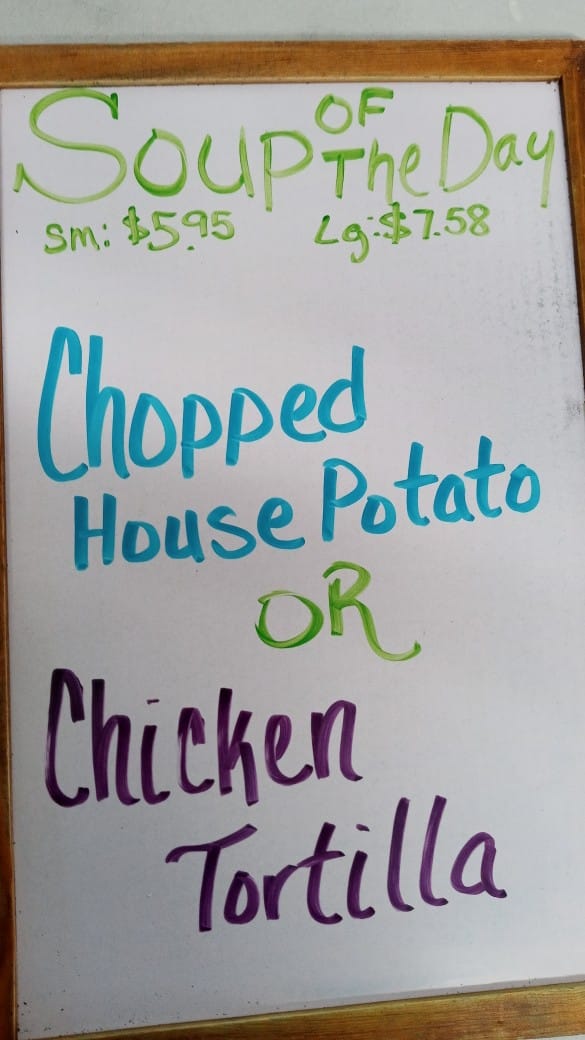 Soup OF The Day
Sm: $5.95 Lg: $7.58
Chopped
House Potato
OR
Chicken
Tortilla